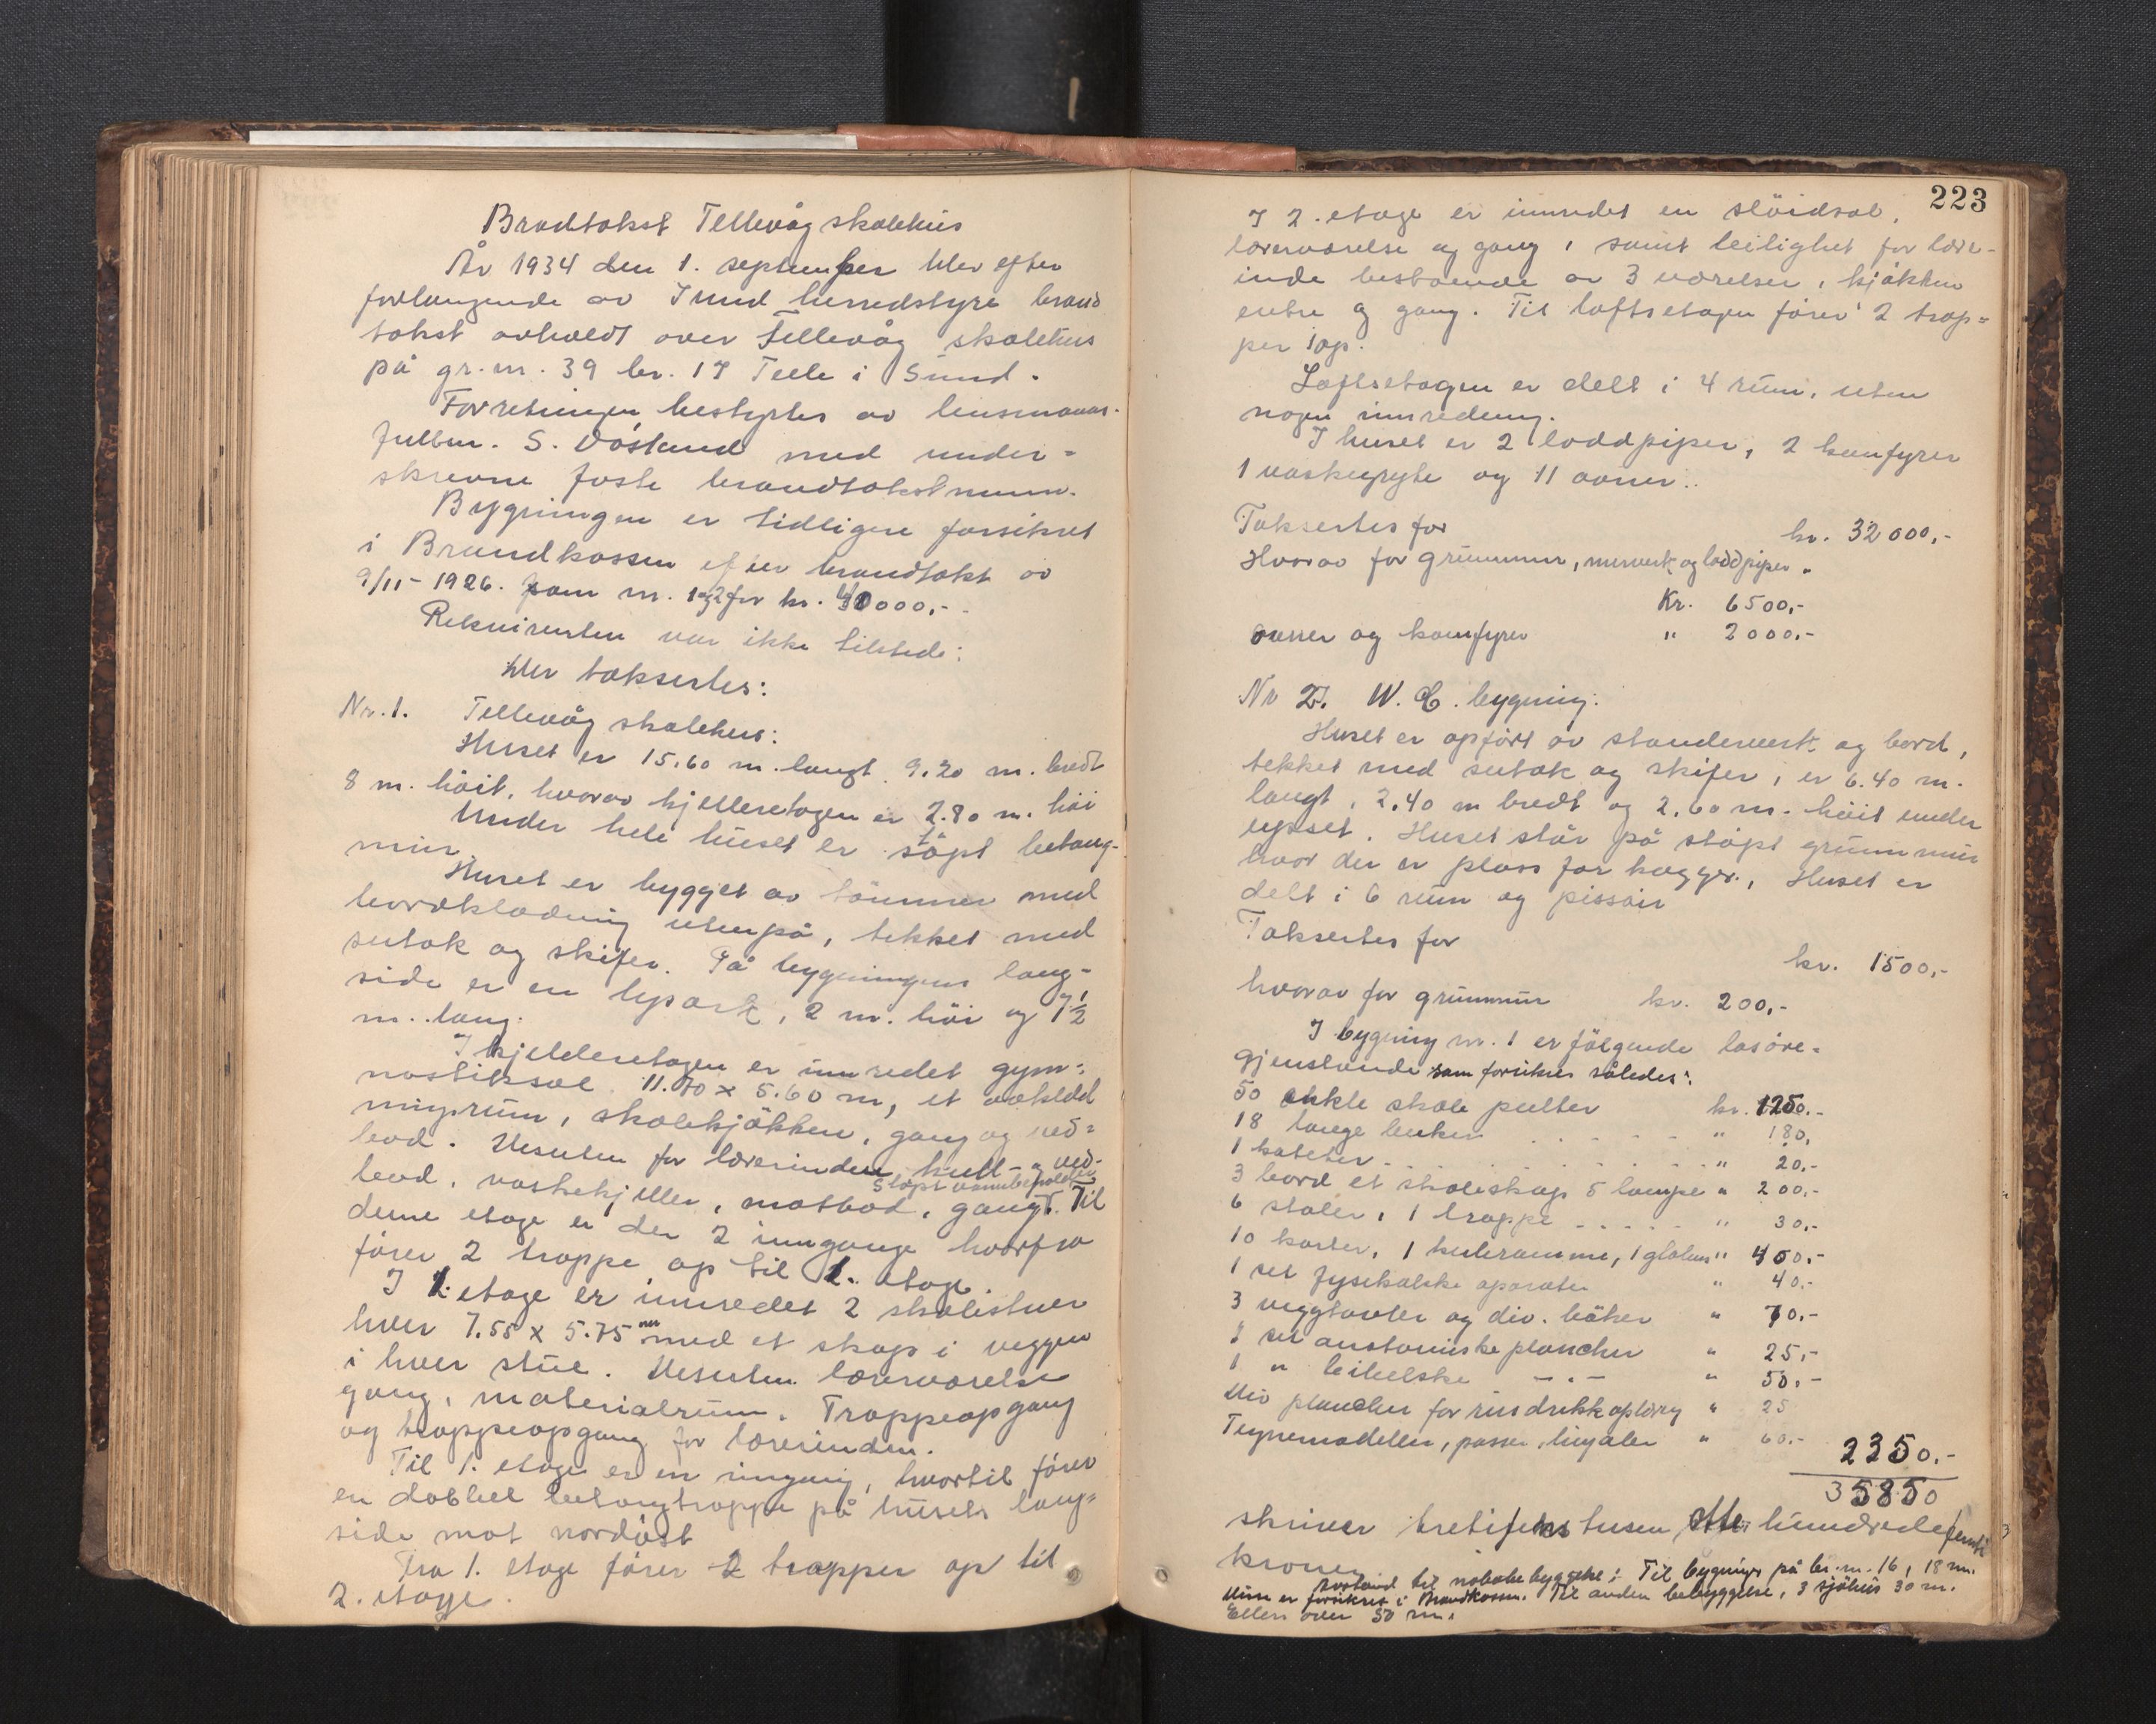 Bradtakst Tellevåg skolehus
År 1934 den 1. september blev efter
forlangende av Sund herredstyre brand
takst avholdt over Tellevåg skolehus
på gr. nr. 39 br. 17 Telle i Sund.
Forretningen bestyrtes av lensmanns-
fullm. S. Vostand med under=
skrevne faste brandtakstmenn.
Bygningen er tidligere forsikret
i Brandkassen efter brandtakt av
9/11-1926. som nr. 1 og 2 for kr. 000,-
Rekvirenten var ikke tilstede:
Der taksertes:
Nr. 1. Tellevåg skolehus:
Huset er 15.60 m. langt. 9.20 m. bredt
8 m. höit, hvorav kjelleretagen er 2.80 m. höi
Under hele huset er stöpt betong-
mur.
Huset er bygget av tömmer med
bordklædning utenpå, tekket med
sutak og skifer. På bygningens lang-
side er en opark, 2 m. höi og 7½
m. lang.
I kjelderetagen er innredet gym=
nastiksal 11.70 x 5.60 m, et avkledd
ningsrum, skolekjökken, gang og ved=
bod. Desuten for lærerinden kull- og ved-
bod, vaskekjeller, matbod, gang. Til
stöpt vannbeholder
denne etage er der 2 innganger hvorfra
förer 2 trappe op til 1. etage.
I 1. etage er innredet 2 skolestuer
hver 7.55 x 5.75 m med et skap i veggen
i hver stue. Desuten læreværelse
gang, materialrum. Trappeopgang
og trappeopgang for lærerinden.
Til 1. etage er en ingang, hvortil förer
en dobbel betongtrappe på husets lang=
side mot nordöst
Fra 1. etage förer 2 trapper op til
2. etage.
223
I 2. etage er innredet en slöidsal,
læreværelse og gang, samt leilighet for lære-
inde bestående av 3 værelser, kjökken
entre og gang. Til loftsetagen förer 2 trap=
per op.
Loftsetagen er delt i 4 rum, uten
nogen innredning.
I huset er 2 loddpiper, 2 komfyrer
1 vaskegryte og 11 ovner.
Taksertes for kr. 32 000,-
Hvorav for grunnmur, murverk og loddpiper.
Kr. 6500,-
ovner og komfyrer " 2000,-
Nr 2. W. C. bygning:
Huset er opfört av stenderverk og bord,
tekket med sutak og skifer, er 6.40 m.
langt, 2,40 m bredt og 2,60 m. höit under
opset. Huset står på stöpt grunnmur
hvor der er plass for kagger. Huset er
delt i 6 rum og pissoir
Taksertes for
kr. 1500,-
hvorav for grunnmur kr. 200,-
I bygning nr. 1 er fölgende lösöre=
gjenstande som forsikres således:
50 enkle skole pulter kr. 1250.-
18 lange benker " 180,
1 kateter " 20.-
3 bord et skoleskap 5 lamper " 200,-
6 stoler, 1 trappe " 30,-
10 karter, 1 kuleramme, 1 globus " 400,-
1 set fysikalske aparater " 40.-
3 veggtavler og div. böker " 70.-
1 set anatomiske plancher " 25,-
1 " bibelske -"- " 50.-
Div plancher for rusdrikkoplæry " 25
Tegnemodeller, passer, linjaler " 60.- 2350.-
35850
skriver trettifem tusen otte hundrede femti
kroner
Avstand til nabobebyggelse: Til bygning på br. nr. 16, 18 m.
Disse er forsikret i Brandkassen. Til anden bebyggelse, 3 sjöhus 30 m.
Ellers over 50 m.